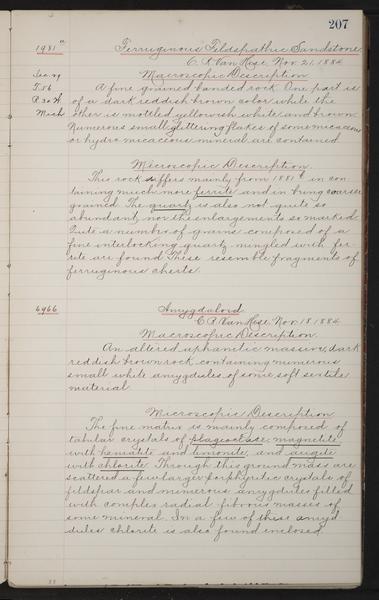 207
1981a Ferruginous Feldspathic Sandstone
C. R. Van Hise, Nov. 21, 1884
Macroscopic Description
Sec. 29 A fine grained banded rock. One part is
T. 56 of a dark reddish brown color while the
R. 30 W. other is mottled yellowish white and brown.
Mich Numerous small glittering flakes of some micaceous
or hydro micaceous mineral are contained
Microscopic Description.
This rock differs mainly from 1881 in con-
taining much more ferrite and in being coarser
grained. The quartz is also not quite so
abundant, nor the enlargements so marked.
Quite a number of grains composed of a
fine interlocking quartz mingled with fer-
rite are found. These resemble fragments of
ferruginous cherts.
4966 Amygdaloid.
C. R. Van Hise, Nov. 18, 1884
Macroscopic Description.
An altered aphanitic massive, dark
reddish brown rock containing numerous
small white amygdules of some soft sectile
material.
Microscopic Description
The fine matrix is mainly composed of
tabular crystals of plagioclase, magnetite
with hematite and limonite, and augite
with chlorite. Through this ground mass are
scattered a few larger porphyritic crystals of
feldspar and numerous amygdules filled
with complex radial fibrous masses of
some mineral. In a few of these amyg
dules chlorite is also found enclosed